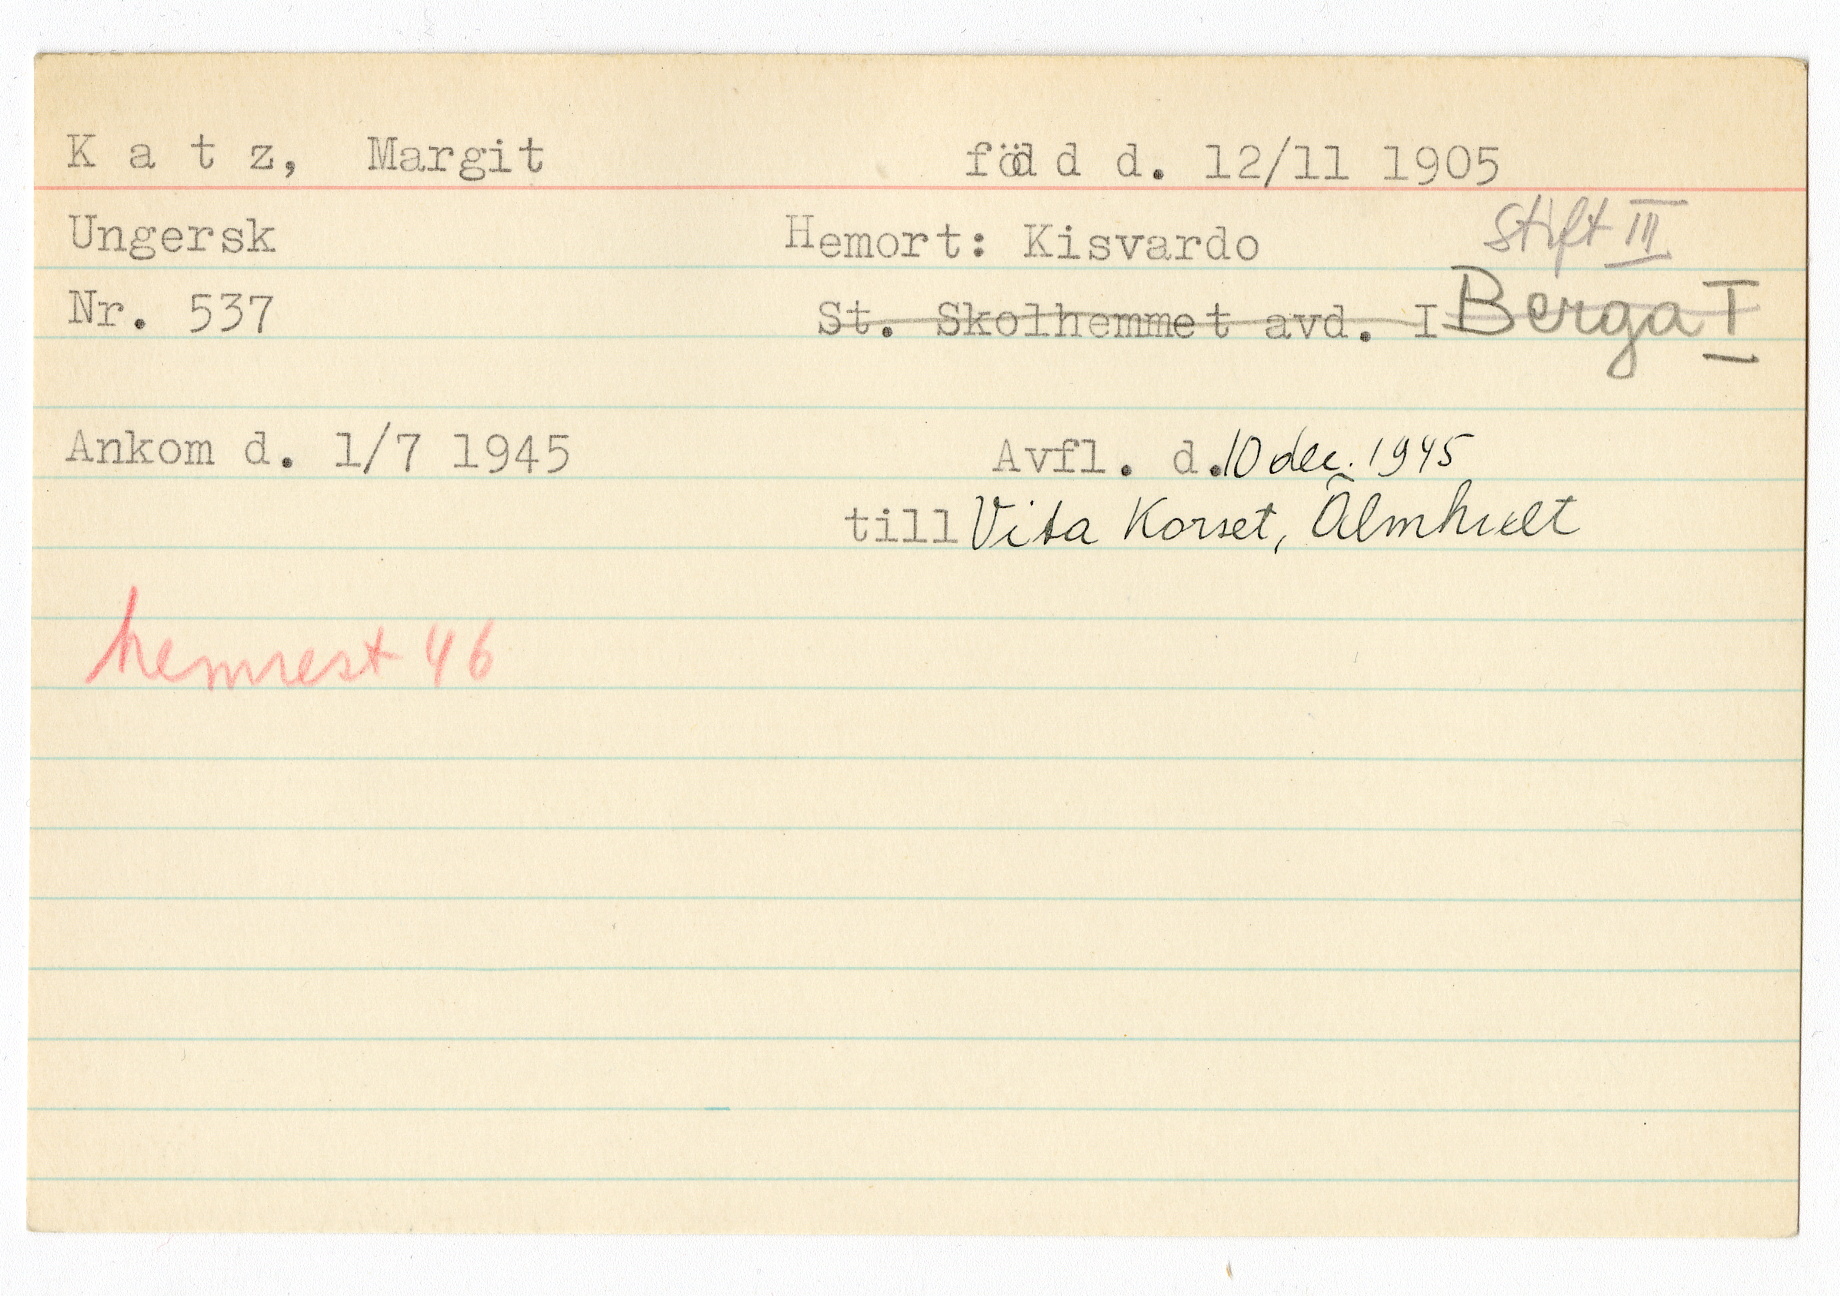 K a t z, Margit född d. 12/11 1905
Ungersk Hemort: Kisvardo Stift III
Nr. 537 St. Skolhemmet avd. I Berga I
Ankom d. 1/7 1945 Avfl. d. 10 dec. 1945
till Vita Korset, Älmhult
hemrest 46